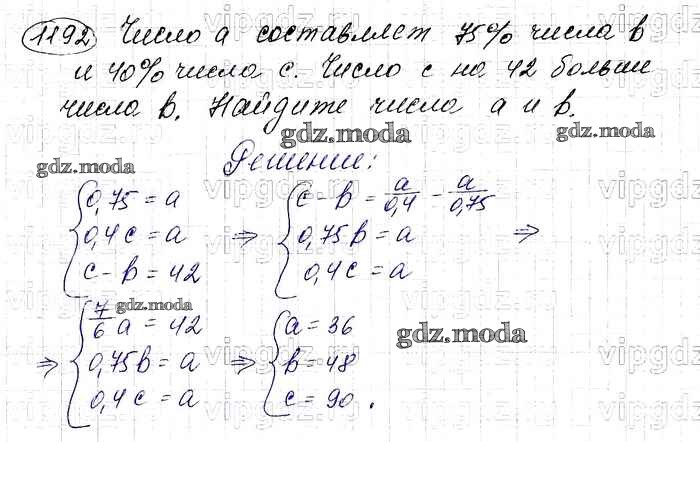 1192 Число a составляет 75% числа b
и 40% числа c. Число c на 42 больше
числа b. Найдите числа a и b.
gdz.moda
Решение:
gdz.moda
{0,75 = a
0,4c = a
c - b = 42
⇒ {c - b = a/0,4 - a/0,75
0,75b = a
0,4c = a
⇒
gdz.moda
⇒ {7/6 a = 42
0,75b = a
0,4c = a
⇒ {a = 36
b = 48
c = 90.
gdz.moda